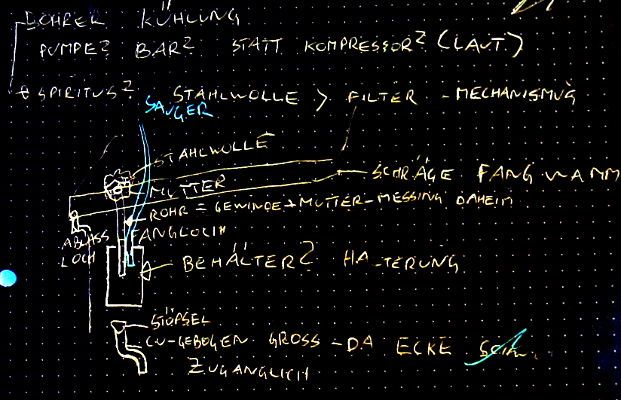 BOHRER KÜHLUNG
PUMPE? BAR? STATT KOMPRESSOR? (LAUT)
SPIRITUS? STAHLWOLLE > FILTER - MECHANISMUS
SAUGER
STAHLWOLLE
MUTTER
SCHRÄGE FANGWANNE
ROHR = GEWINDE + MUTTER - MESSING DAHEIM
ABLASS LOCH
FANGLOCH
BEHÄLTER? HALTERUNG
STÖPSEL
CU-GEBOGEN GROSS - DA ECKE
ZUGÄNGLICH